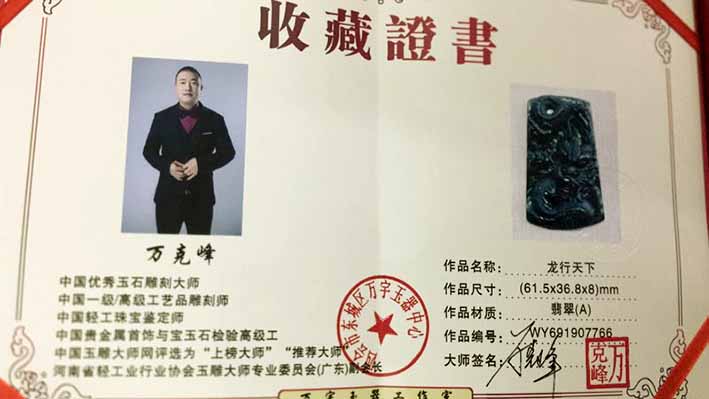 收藏證書
万克峰
中国优秀玉石雕刻大师
中国一级/高级工艺品雕刻师
中国轻工珠宝鉴定师
中国贵金属首饰与宝玉石检验高级工
中国玉雕大师网评选为“上榜大师”“推荐大师”
河南省轻工业行业协会玉雕大师专业委员会(广东)副会长
市东城区万宇玉器中心
作品名称: 龙行天下
作品尺寸: (61.5x36.8x8)mm
作品材质: 翡翠(A)
作品编号: WY691907766
大师签名:
万克峰
万宇玉器工作室